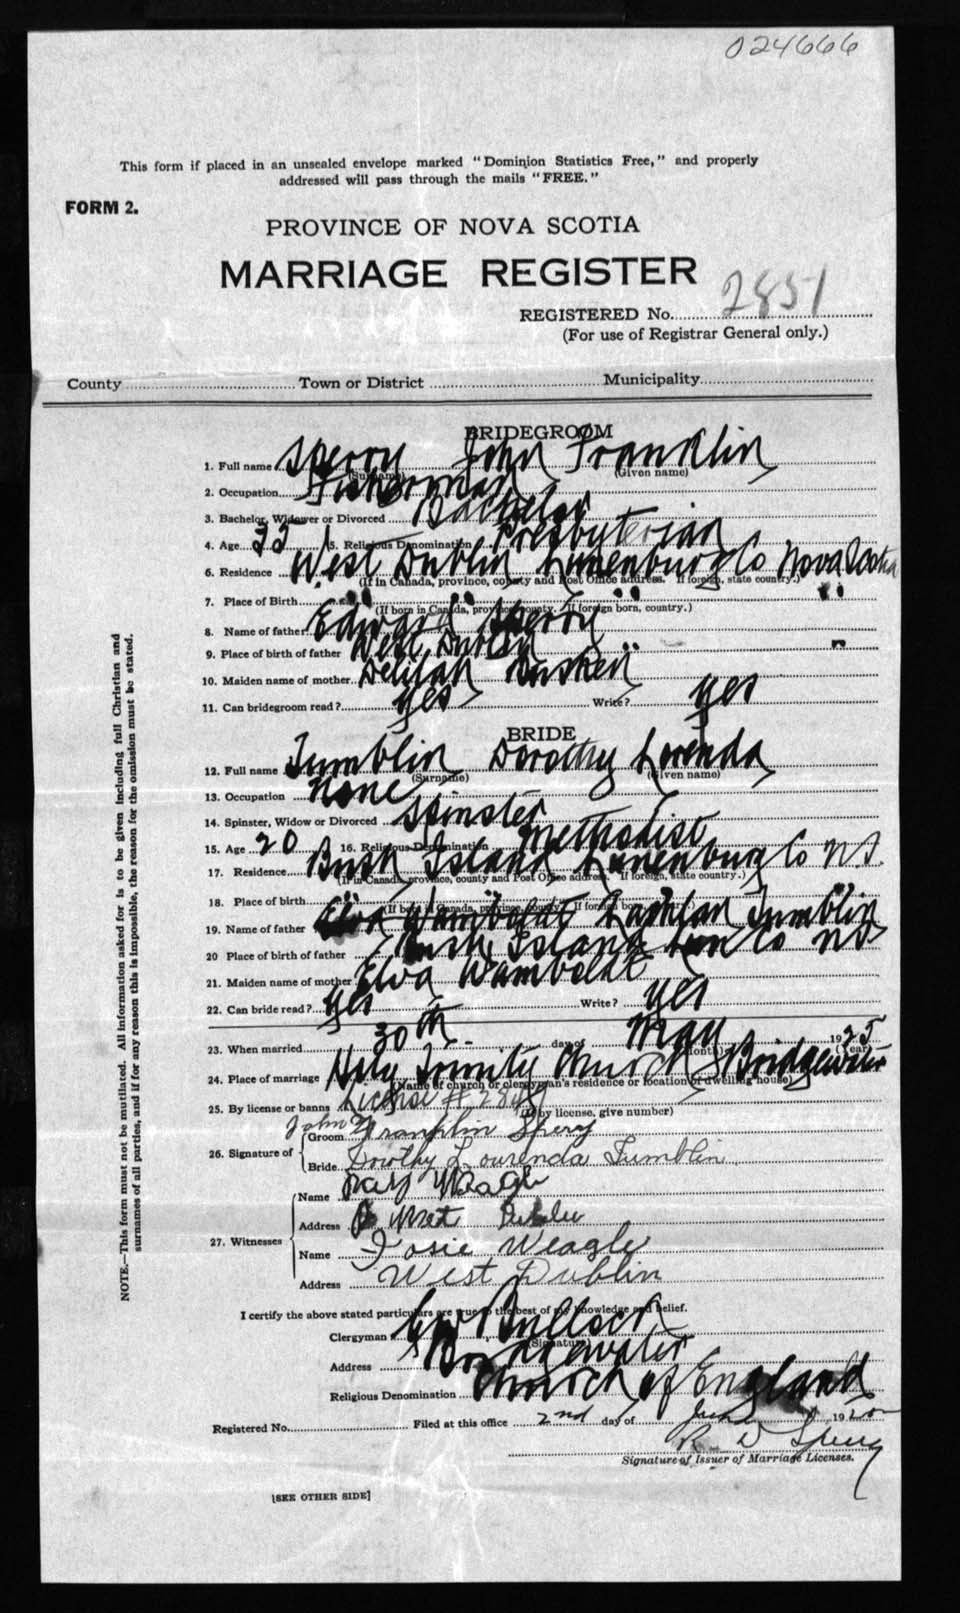 024666
This form if placed in an unsealed envelope marked "Dominion Statistics Free," and properly
addressed will pass through the mails "FREE."
FORM 2.
PROVINCE OF NOVA SCOTIA
MARRIAGE REGISTER
REGISTERED No. 2851
(For use of Registrar General only.)
County Town or District Municipality
BRIDEGROOM
1. Full name Sperry John Franklin
(Surname) (Given name)
2. Occupation Fisherman
3. Bachelor, Widower or Divorced Bachelor
4. Age 33 5. Religious Denomination Presbyterian
6. Residence West Dublin Lunenburg Co Nova Scotia
(If in Canada, province, county and Post Office address. If foreign, state country.)
7. Place of Birth " " " "
(If born in Canada, province, county. If foreign born, country.)
8. Name of father Edward Sperry
9. Place of birth of father West Dublin " "
10. Maiden name of mother Delilah
11. Can bridegroom read? yes Write? yes
BRIDE
12. Full name Tumblin Dorothy Lorenda
(Surname) (Given name)
13. Occupation None
14. Spinster, Widow or Divorced Spinster
15. Age 20 16. Religious Denomination Methodist
17. Residence Bush Island Lunenburg Co N.S.
(If in Canada, province, county and Post Office address. If foreign, state country.)
18. Place of birth " " "
(If born in Canada, province, county. If foreign born, country.)
19. Name of father Elva Wamboldt Lachlan Tumblin
20 Place of birth of father Bush Island Lun Co NS
21. Maiden name of mother Elva Wamboldt
22. Can bride read? yes Write? yes
23. When married 30th day of May 1925
(Month) (Year)
24. Place of marriage Holy Trinity Church Bridgewater
(Name of church or clergyman's residence or location of dwelling house)
25. By license or banns License #
(If by license, give number)
26. Signature of
Groom John Franklin Sperry
Bride Dorothy Lourenda Tumblin
27. Witnesses
Name Weagle
Address West Dublin
Name Josie Weagle
Address West Dublin
I certify the above stated particulars are true to the best of my knowledge and belief.
Clergyman Bullock
(Signature)
Address Bridgewater
Religious Denomination Church of England
Registered No. Filed at this office 2nd day of June 1925
R D Sperry
Signature of Issuer of Marriage Licenses.
[SEE OTHER SIDE]
NOTE.—This form must not be mutilated. All information asked for is to be given including full Christian and
surnames of all parties, and if for any reason this is impossible, the reason for the omission must be stated.